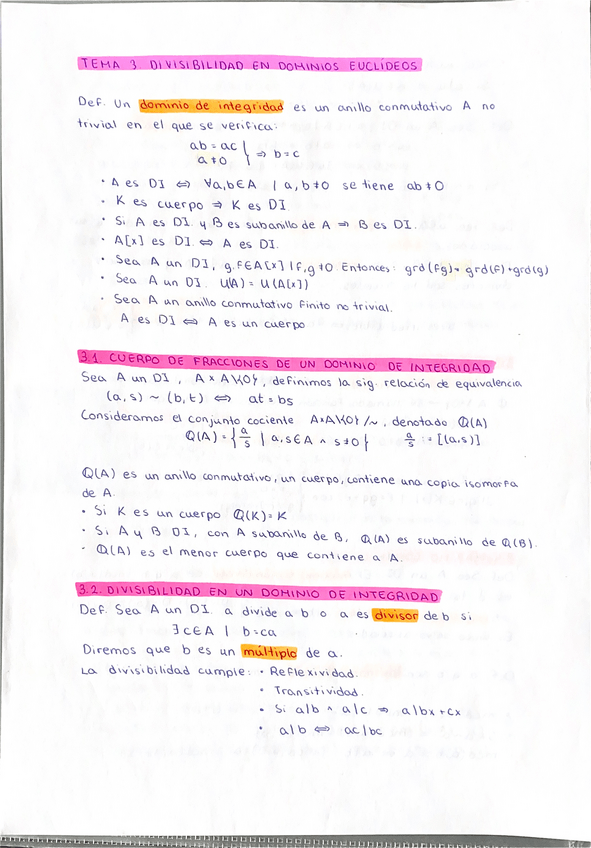 TEMA 3 DIVISIBILIDAD EN DOMINIOS EUCLÍDEOS
Def. Un dominio de integridad es un anillo conmutativo A no
trivial en el que se verifica:
ab = ac
a ≠ 0 } ⇒ b = c
· A es DI ⇔ ∀a,b∈A | a,b ≠ 0 se tiene ab ≠ 0
· K es cuerpo ⇒ K es DI.
· Si A es DI y B es subanillo de A ⇒ B es DI.
· A[x] es DI ⇔ A es DI.
· Sea A un DI, g,f∈A[x] | f,g ≠ 0. Entonces: grd(fg) = grd(f)+grd(g)
· Sea A un DI. U(A) = U(A[x])
· Sea A un anillo conmutativo finito no trivial.
A es DI ⇔ A es un cuerpo
3.1. CUERPO DE FRACCIONES DE UN DOMINIO DE INTEGRIDAD
Sea A un DI, A x A\{0}, definimos la sig. relación de equivalencia
(a,s) ~ (b,t) ⇔ at = bs
Consideramos el conjunto cociente AxA\{0}/~, denotado Q(A)
Q(A) = { a/s | a,s∈A ∧ s≠0 } a/s := [(a,s)]
Q(A) es un anillo conmutativo, un cuerpo, contiene una copia isomorfa
de A.
· Si K es un cuerpo Q(K) = K
· Si A y B DI, con A subanillo de B, Q(A) es subanillo de Q(B).
· Q(A) es el menor cuerpo que contiene a A.
3.2. DIVISIBILIDAD EN UN DOMINIO DE INTEGRIDAD
Def. Sea A un DI. a divide a b o a es divisor de b si
∃c∈A | b=ca
Diremos que b es un múltiplo de a.
La divisibilidad cumple: · Reflexividad.
· Transitividad.
· Si a|b ∧ a|c ⇒ a|bx+cx
· a|b ⇔ ac|bc